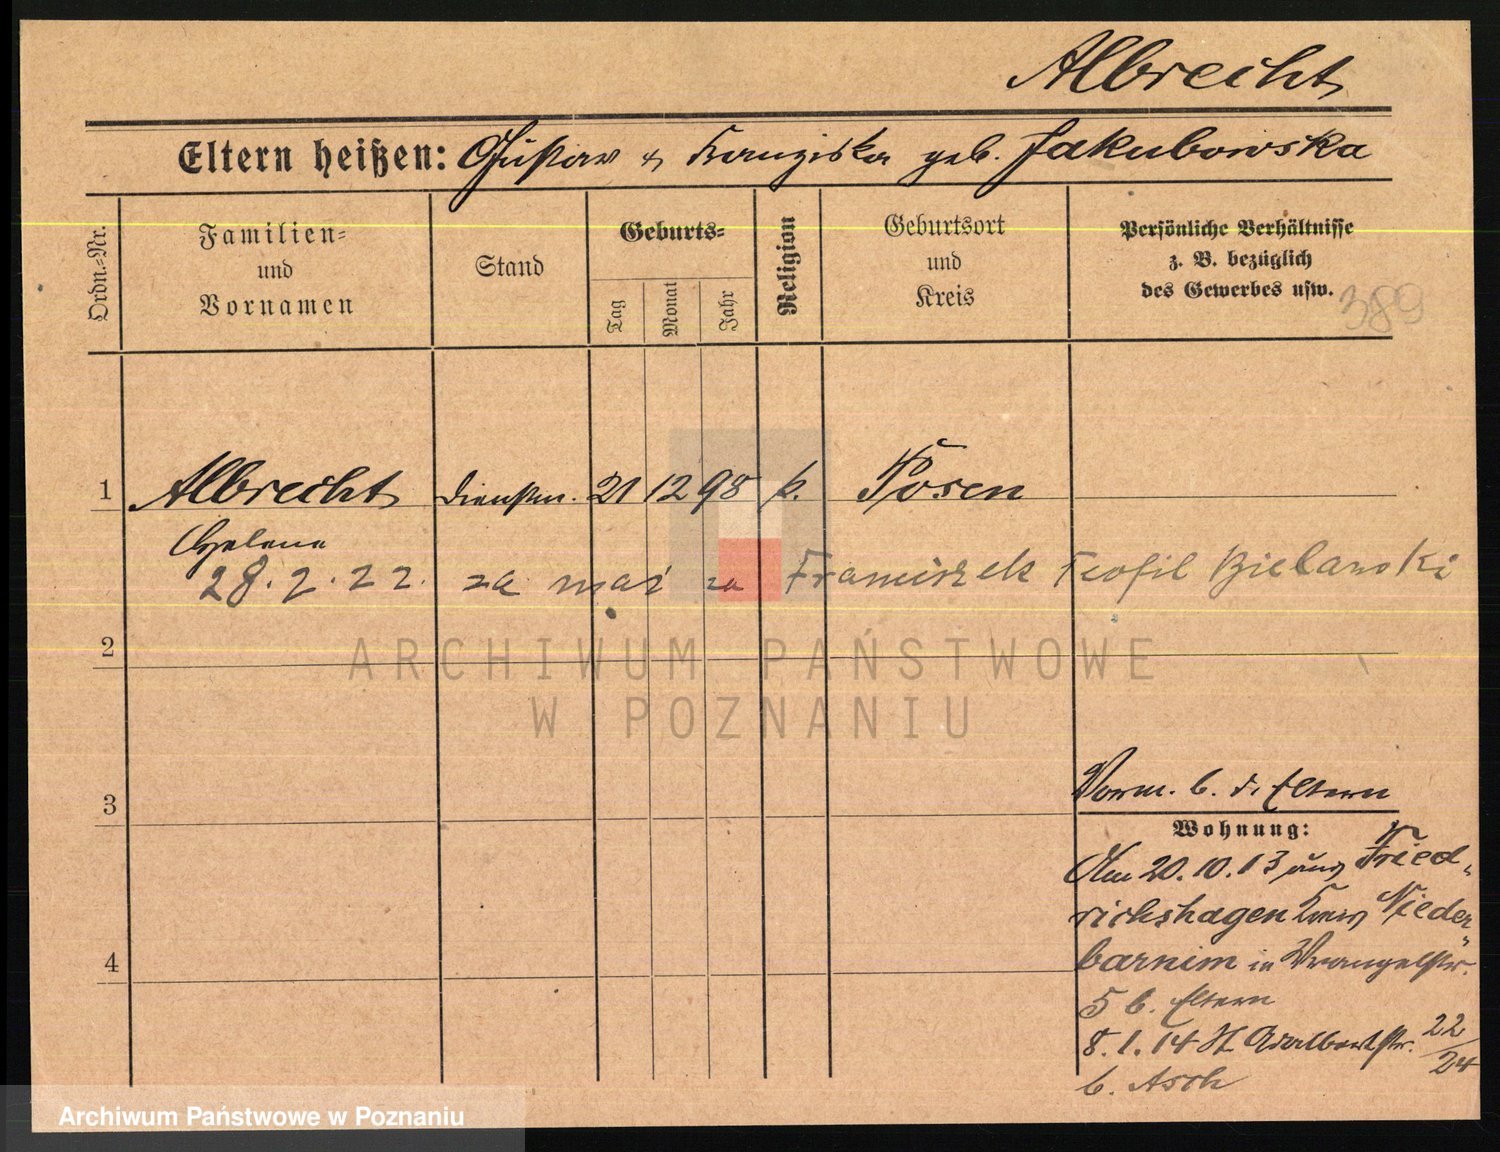 Albrecht
Eltern heißen: Gustav & Franziska geb. Jakubowska
Ordn.-Nr.
Familien-
und
Vornamen
Stand
Geburts-
Tag
Monat
Jahr
Religion
Geburtsort
und
Kreis
Persönliche Verhältnisse
z. B. bezüglich
des Gewerbes usw.
389
1 Albrecht Dienstm. 21 12 98 k. Posen
Helene
28.2.22. za mąż za Franciszek Teofil Bielawski
2
ARCHIWUM PAŃSTWOWE
W POZNANIU
3
Vorm. b. d. Eltern
Wohnung:
Am 20.10.13 aus Fried-
richshagen Kreis Nieder-
barnim in Wrangelstr.
5 b. Eltern
4
8.1.14 St. Adalbertstr. 22/24
b. Asch
Archiwum Państwowe w Poznaniu